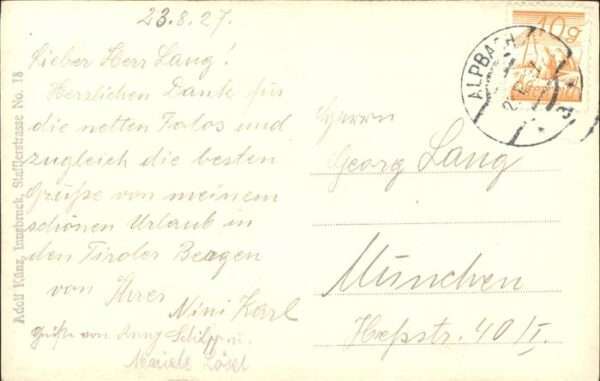 23.8.27.
Lieber Herr Lang!
Herzlichen Dank für
die netten Fotos und
zugleich die besten
Grüße von meinem
schönen Urlaub in
den Tiroler Bergen
von Ihrer
Nini Karl
Grüße von Anny Schilpp u.
Mariele Lösel
Adolf Künz, Innsbruck, Stafflerstrasse No. 18
10g
ALPBACH
Herrn
Georg Lang
München
Heßstr. 40/I.